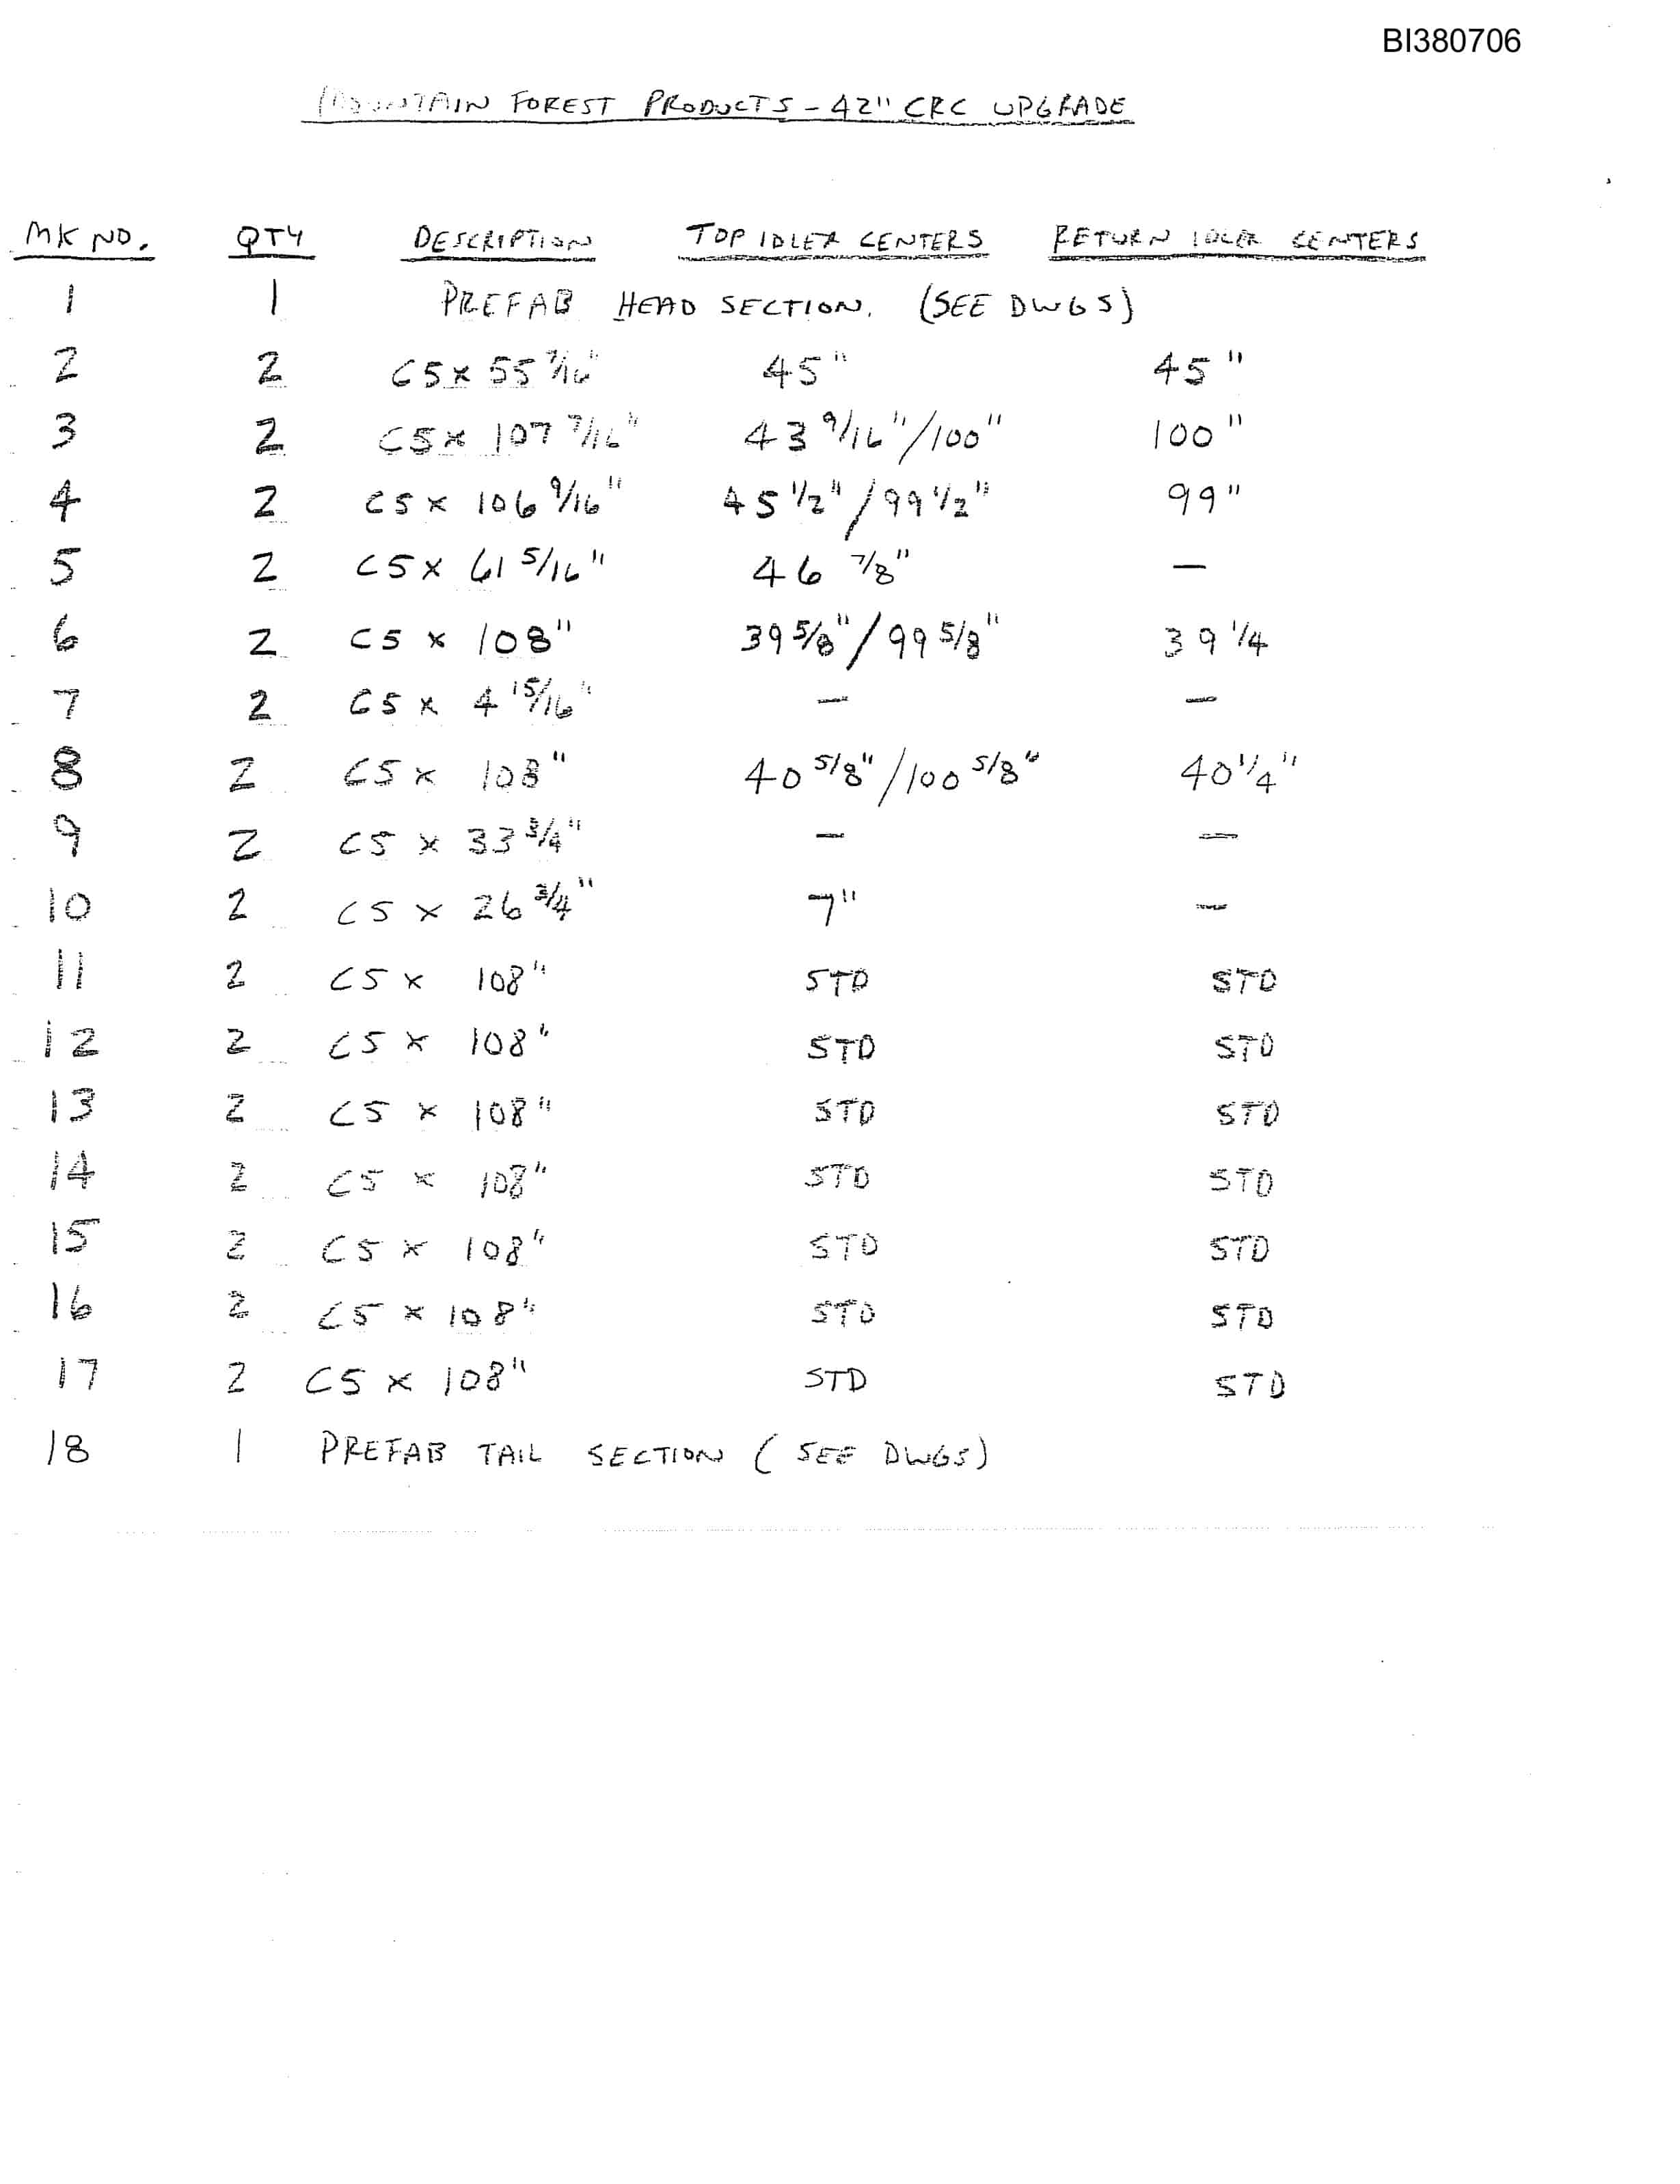 BI380706
MOUNTAIN FOREST PRODUCTS - 42" CRC UPGRADE
MK NO. QTY DESCRIPTION TOP IDLER CENTERS RETURN IDLER CENTERS
1 1 PREFAB HEAD SECTION. (SEE DWGS)
2 2 C5 x 55 7/16" 45" 45"
3 2 C5 x 107 7/16" 43 9/16"/100" 100"
4 2 C5 x 106 9/16" 45 1/2"/99 1/2" 99"
5 2 C5 x 61 5/16" 46 7/8" —
6 2 C5 x 108" 39 5/8"/99 5/8" 39 1/4
7 2 C5 x 4 15/16" — —
8 2 C5 x 108" 40 5/8"/100 5/8" 40 1/4"
9 2 C5 x 33 3/4" — —
10 2 C5 x 26 3/4" 7" —
11 2 C5 x 108" STD STD
12 2 C5 x 108" STD STD
13 2 C5 x 108" STD STD
14 2 C5 x 108" STD STD
15 2 C5 x 108" STD STD
16 2 C5 x 108" STD STD
17 2 C5 x 108" STD STD
18 1 PREFAB TAIL SECTION (SEE DWGS)